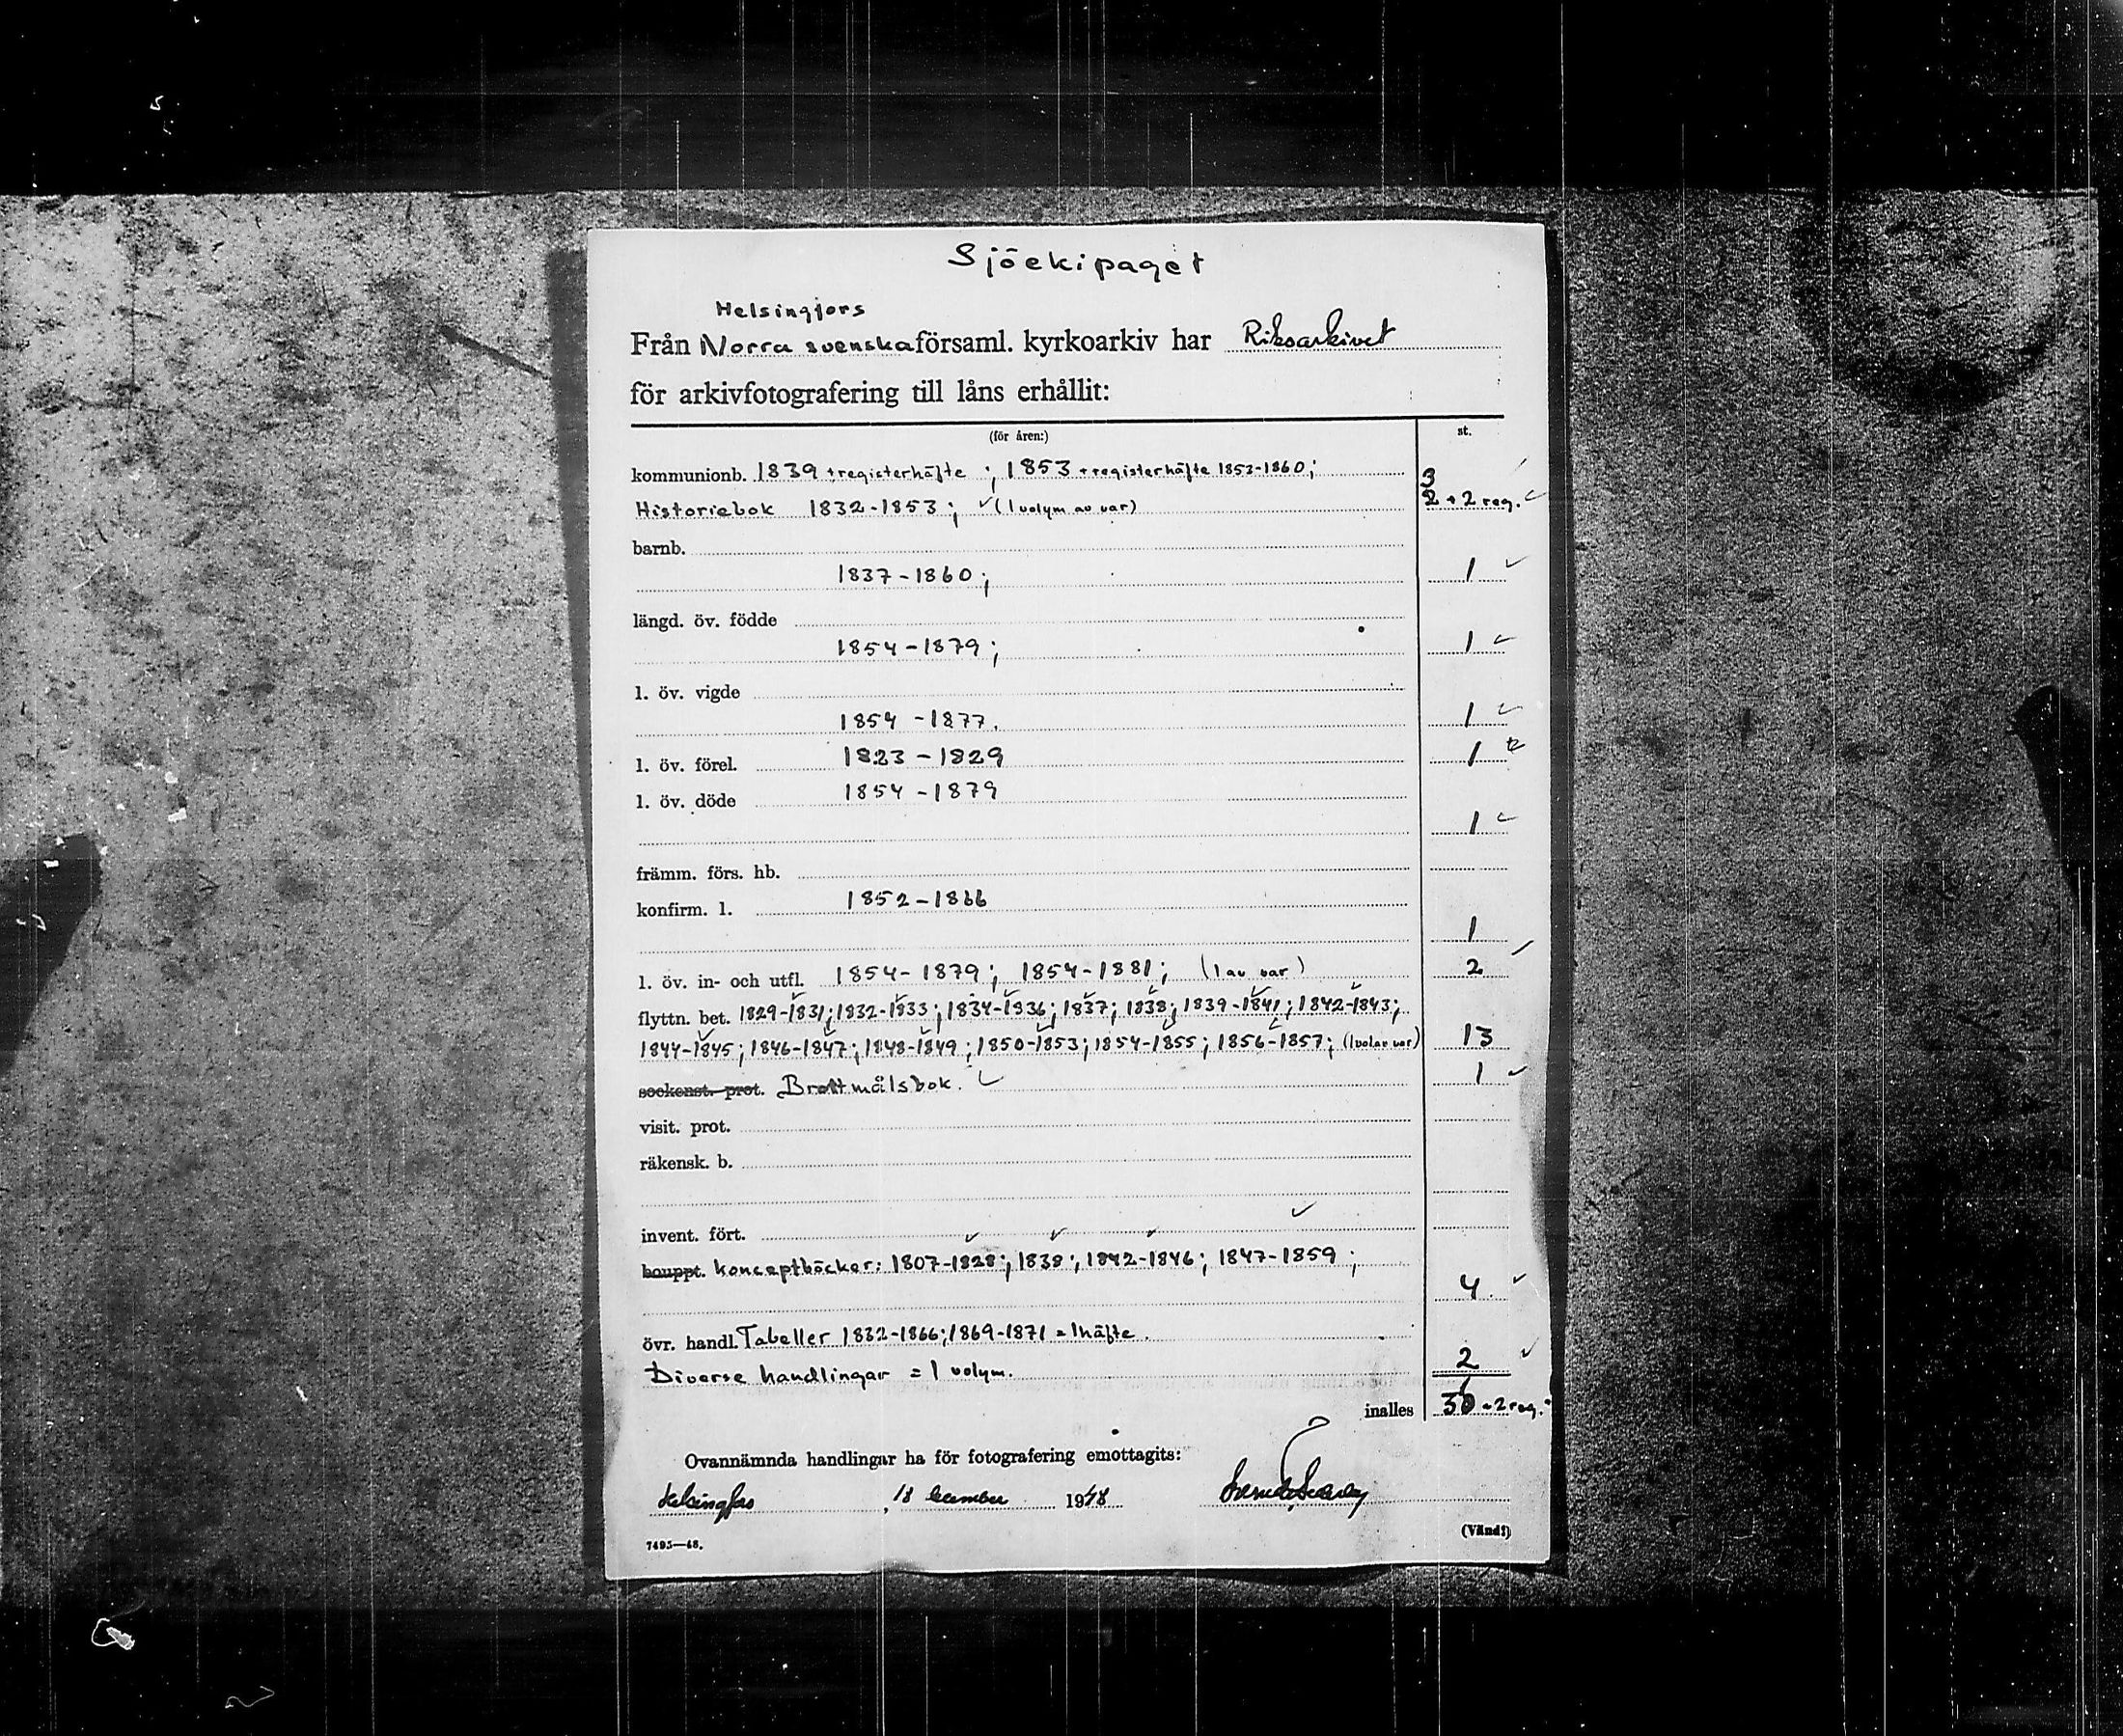 Sjöekipaget
Helsingfors
Från Norra svenska församl. kyrkoarkiv har Riksarkivet
för arkivfotografering till låns erhållit:
(för åren:) st.
kommunionb. 1839 + registerhäfte ; 1853 + registerhäfte 1853-1860; 3
Historiebok 1832-1853; (1 volym av var) 2 + 2 reg.
barnb.
1837-1860; 1
längd. öv. födde
1854-1879; 1
l. öv. vigde
1854-1877. 1
l. öv. förel. 1823-1829 1
l. öv. döde 1854-1879
1
främm. förs. hb.
konfirm. l. 1852-1866
1
l. öv. in- och utfl. 1854-1879; 1854-1881; (1 av var) 2
flyttn. bet. 1829-1831; 1832-1833; 1834-1836; 1837; 1838; 1839-1841; 1842-1843;
1844-1845; 1846-1847; 1848-1849; 1850-1853; 1854-1855; 1856-1857; (1 vol av var) 13
sockenst. prot. Brottmålsbok. 1
visit. prot.
räkensk. b.
invent. fört.
bouppt. Konceptböcker: 1807-1828; 1838; 1842-1846; 1847-1859;
4
övr. handl. Tabeller 1832-1866; 1869-1871 = 1 häfte.
Diverse handlingar = 1 volym. 2
inalles 30 + 2 reg.
Ovannämnda handlingar ha för fotografering emottagits:
Helsingfors, 18 december 1948
7495—48. (Vänd!)